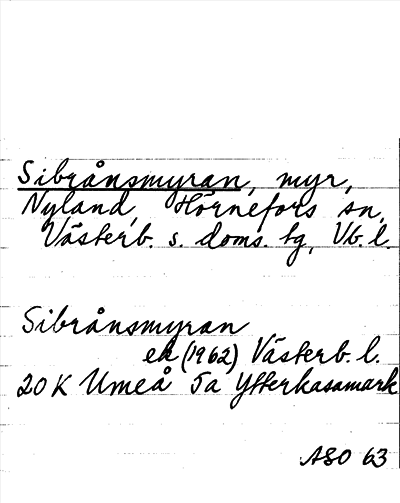 Sibrånsmyran, myr,
Nyland, Hörnefors sn,
Västerb. s. doms. tg, Vb. l.
Sibrånsmyran
ek (1962) Västerb. l.
20 K Umeå 5a Ytterkasamark
ASO 63